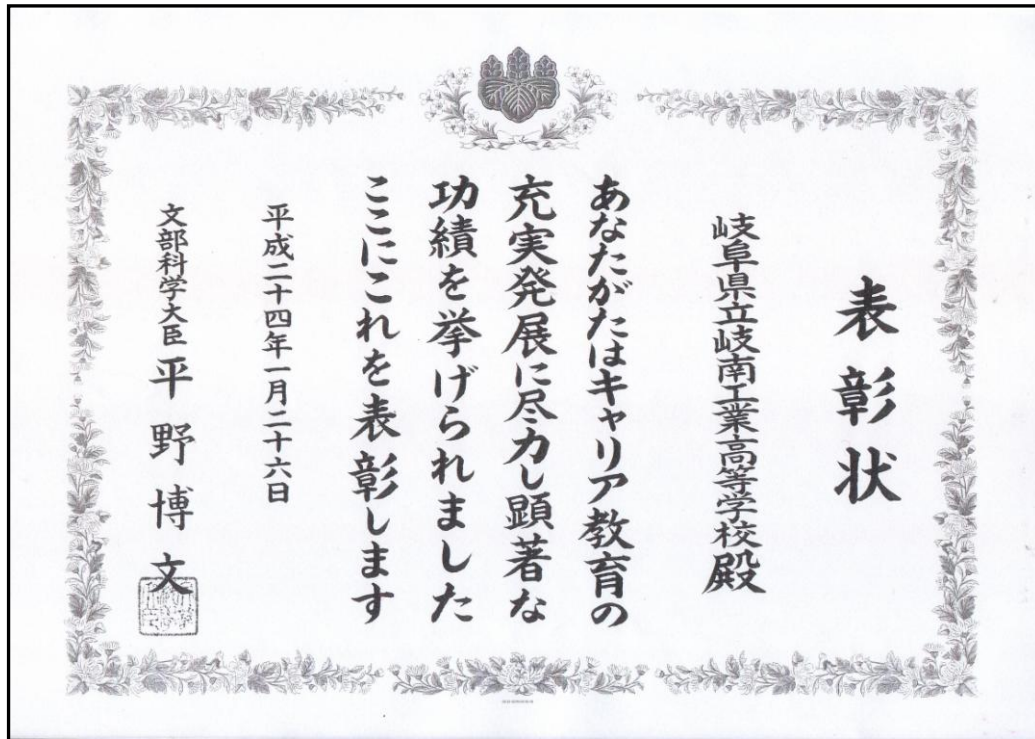 表彰状
岐阜県立岐南工業高等学校殿
あなたがたはキャリア教育の
充実発展に尽力し顕著な
功績を挙げられました
ここにこれを表彰します
平成二十四年一月二十六日
文部科学大臣 平野博文